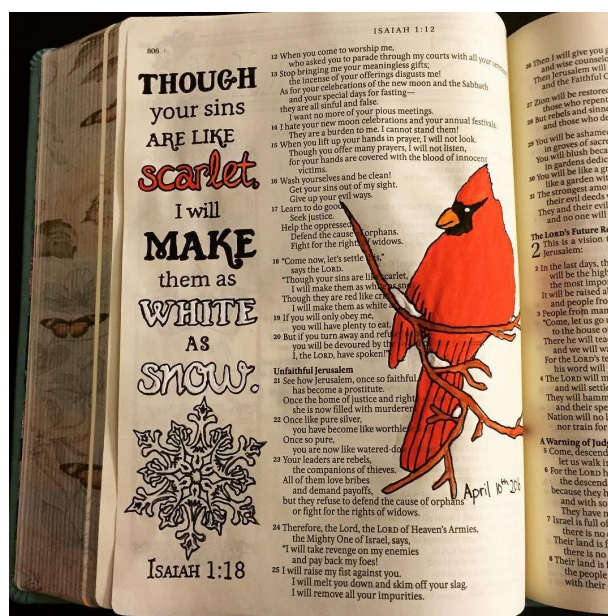 ISAIAH 1:12
806
THOUGH
your sins
ARE LIKE
scarlet,
I will
MAKE
them as
WHITE
AS
SNOW.
ISAIAH 1:18
12 When you come to worship me,
who asked you to parade through my courts with all your
13 Stop bringing me your meaningless gifts;
the incense of your offerings disgusts me!
As for your celebrations of the new moon and the Sabbath
and your special days for fasting—
they are all sinful and false.
I want no more of your pious meetings.
14 I hate your new moon celebrations and your annual festivals.
They are a burden to me. I cannot stand them!
15 When you lift up your hands in prayer, I will not look.
Though you offer many prayers, I will not listen,
for your hands are covered with the blood of innocent
victims.
16 Wash yourselves and be clean!
Get your sins out of my sight.
Give up your evil ways.
17 Learn to do good.
Seek justice.
Help the oppressed.
Defend the cause of orphans.
Fight for the rights of widows.
18 “Come now, let’s settle this,”
says the LORD.
“Though your sins are like scarlet,
I will make them as white as
Though they are red like
I will make them as white
19 If you will only obey me,
you will have plenty to eat.
20 But if you turn away and
you will be devoured by the
I, the LORD, have spoken!”
Unfaithful Jerusalem
21 See how Jerusalem, once so faithful,
has become a prostitute.
Once the home of justice and
she is now filled with
22 Once like pure silver,
you have become like
Once so pure,
you are now like
23 Your leaders are rebels,
the companions of thieves.
All of them love bribes
and demand payoffs,
but they refuse to defend the cause of orphans
or fight for the rights of widows.
24 Therefore, the Lord, the LORD of Heaven’s Armies,
the Mighty One of Israel, says,
“I will take revenge on my enemies
and pay back my foes!
25 I will raise my fist against you.
I will melt you down and skim off your slag.
I will remove all your impurities.
April 10th
26 Then I will give you
and wise
Then Jerusalem will
and the Faithful
27 Zion will be restored
those who
28 But rebels and
and those who
29 You will be ashamed
in groves of
You will blush
in gardens
30 You will be like a
like a garden
31 The strongest
their evil deeds
They and their evil
and no one will
The LORD’s Future
2 This is a vision
Jerusalem:
2 In the last days,
will be the
the most
It will be raised
and people
3 People from
“Come, let us go
to the house
There he will
and we will
For the LORD’s
his word will
4 The LORD will
and will settle
They will hammer
and their
Nation will no
nor train for
A Warning of
5 Come,
let us walk
6 For the LORD
the
because they
and with
They have
7 Israel is full
there is no
Their land is
there is no
8 Their land is
the people
with their